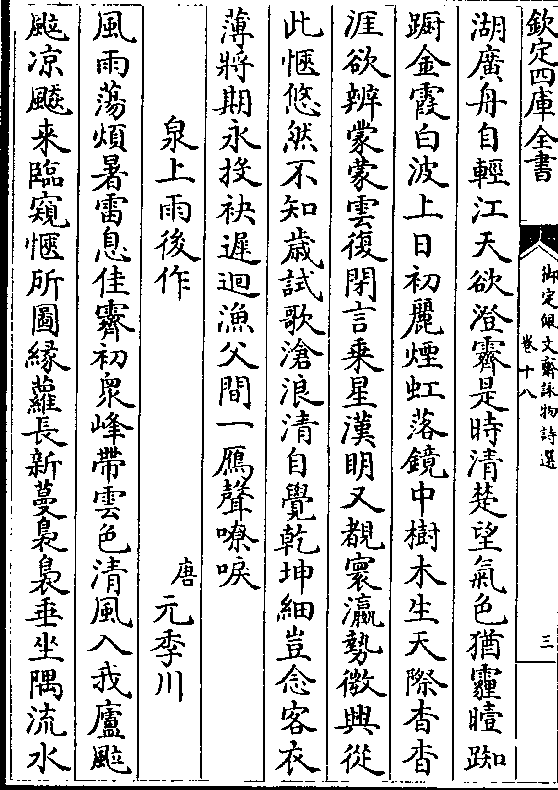 欽定四庫全書
御定佩文齋詠物詩選
卷十八
三
湖廣舟自輕江天欲澄霽是時清楚望氣色猶霾曀踟
蹰金霞白波上日初麗煙虹落鏡中樹木生天際杳杳
涯欲辨蒙蒙雲復閉言乗星漢明又覩寰瀛勢微興從
此愜悠然不知歲試歌滄浪清自覺乾坤細豈念客衣
薄將期永投袂遲迴漁父間一鴈聲嘹唳
泉上雨後作
唐 元季川
風雨蕩煩暑雷息佳霽初衆峰帶雲色清風入我廬颭
颭凉飈来臨窺愜所圖緣蘿長新蔓裊裊垂坐隅流水